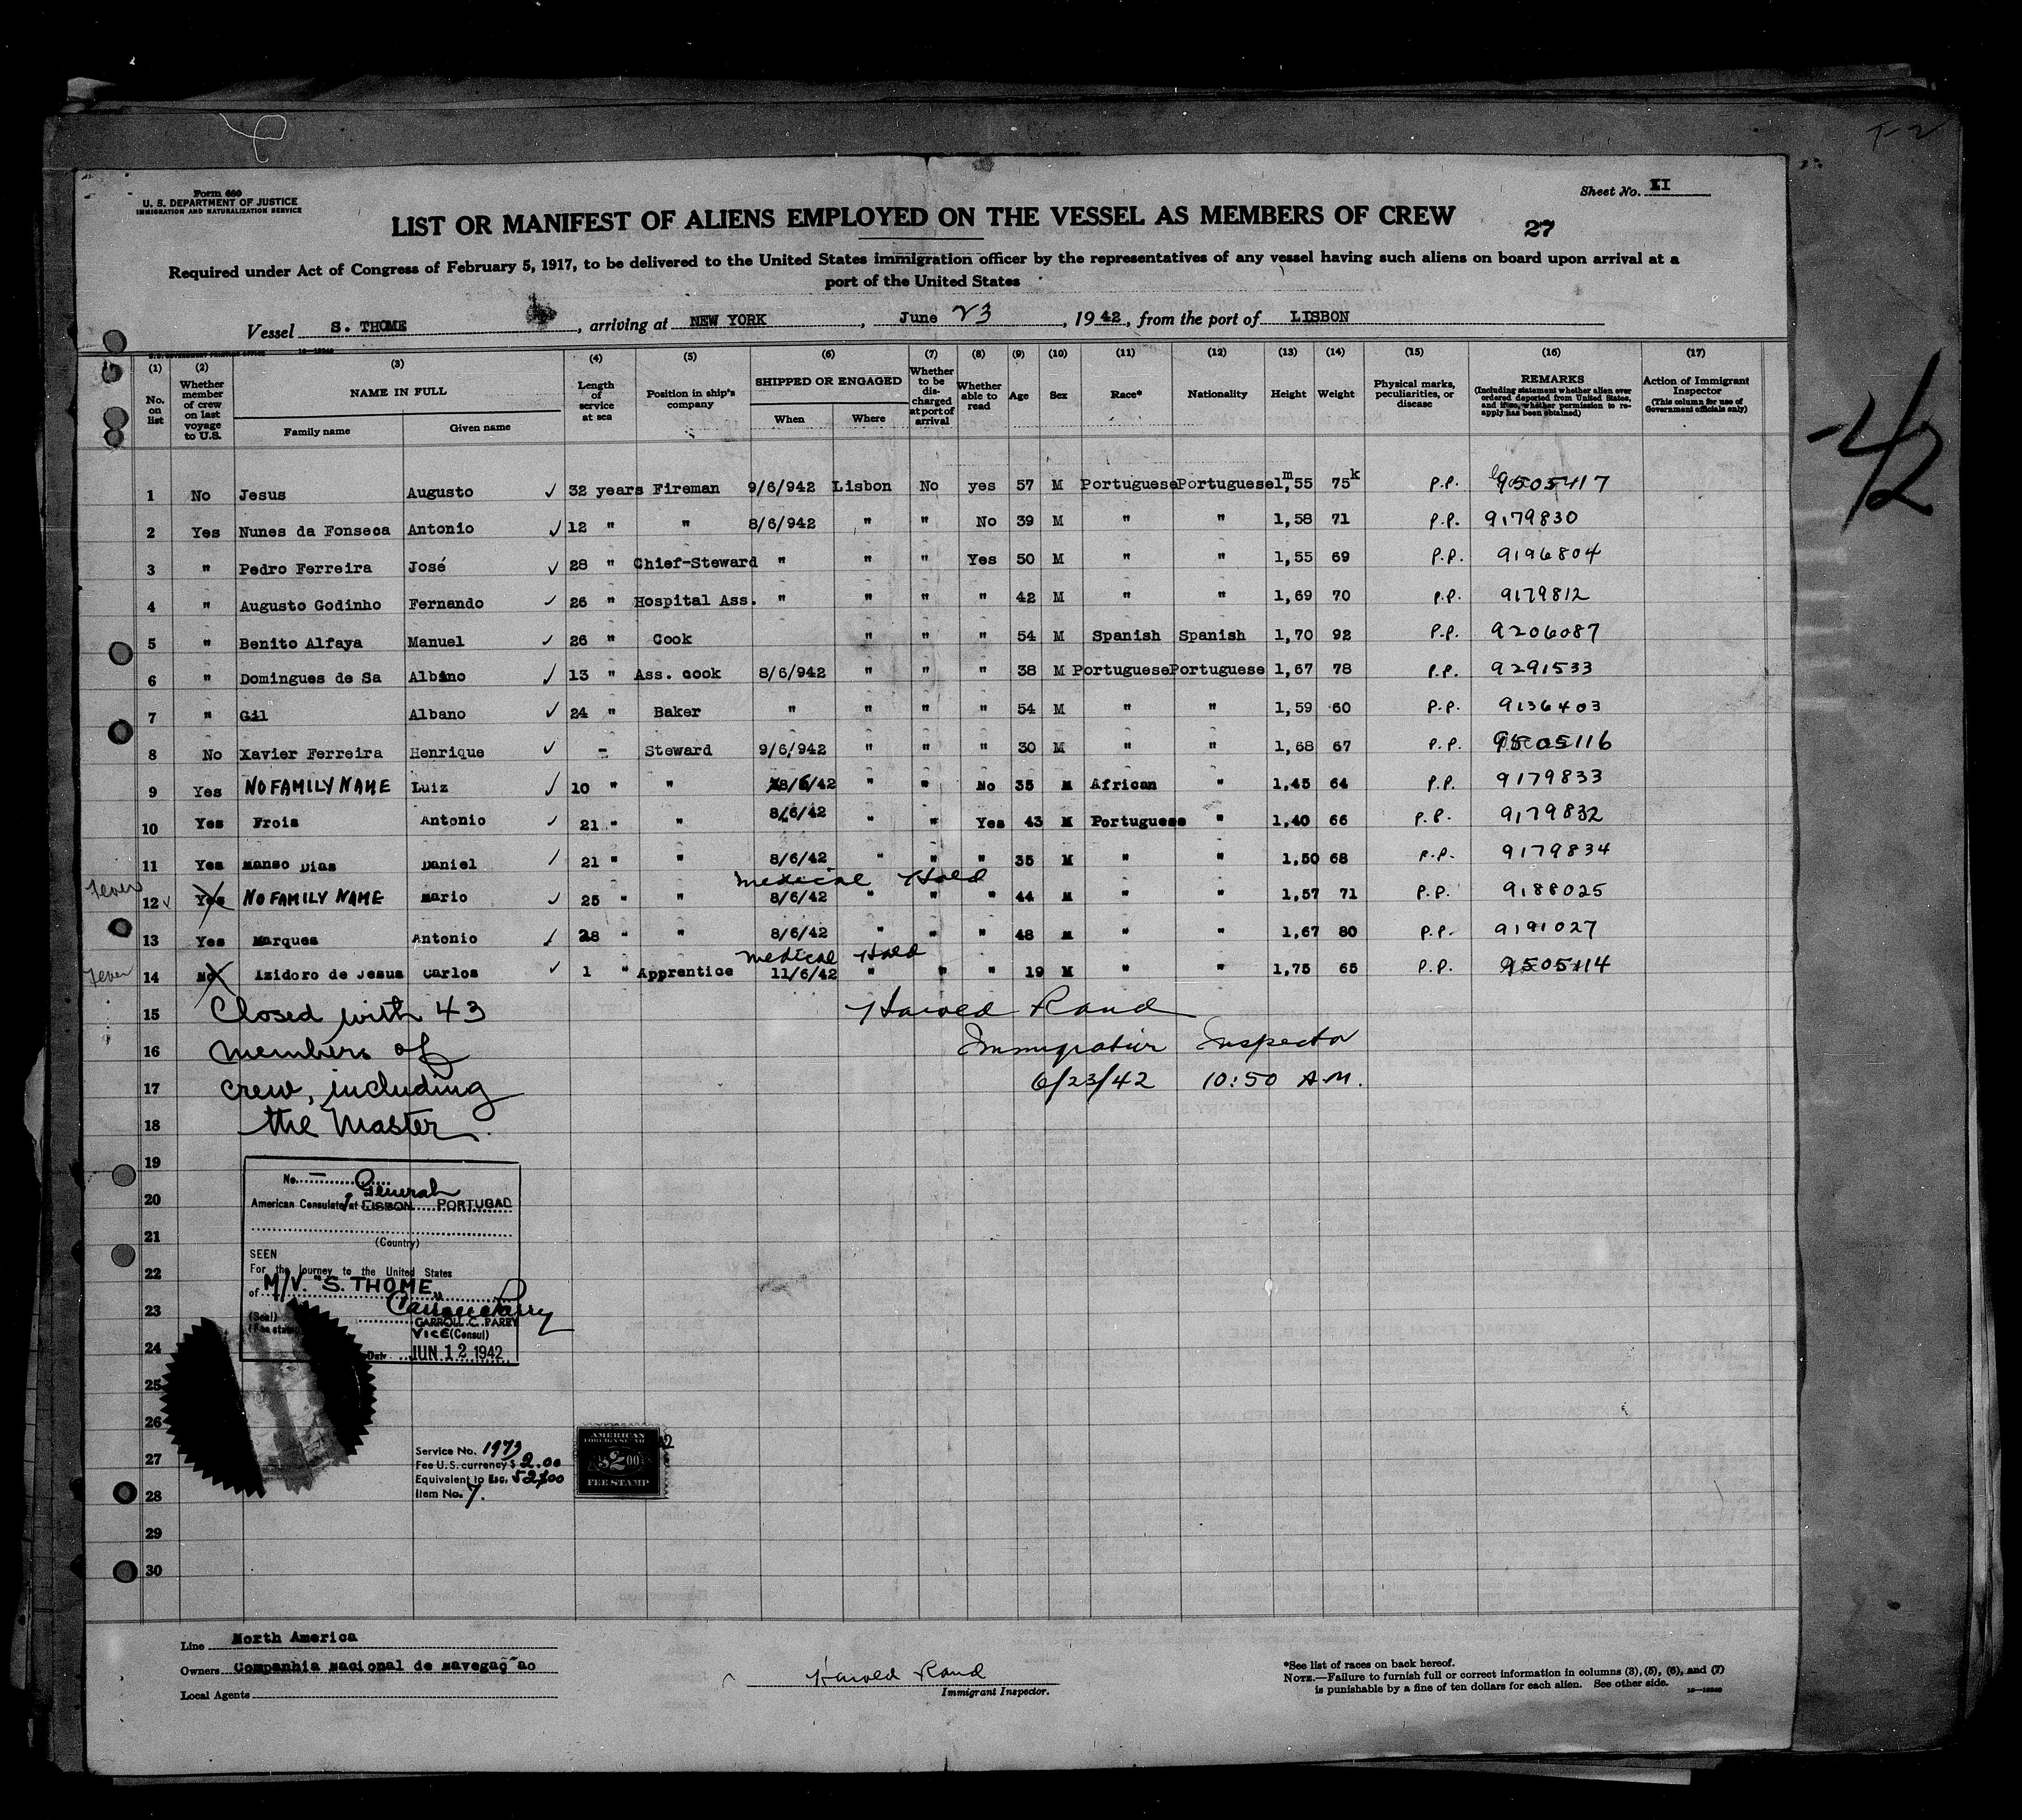 T-2
Form 680
U. S. DEPARTMENT OF JUSTICE
IMMIGRATION AND NATURALIZATION SERVICE
Sheet No. II
LIST OR MANIFEST OF ALIENS EMPLOYED ON THE VESSEL AS MEMBERS OF CREW
27
Required under Act of Congress of February 5, 1917, to be delivered to the United States immigration officer by the representatives of any vessel having such aliens on board upon arrival at a
port of the United States
Vessel S. THOME, arriving at NEW YORK, June 23, 1942, from the port of LISBON
U. S. GOVERNMENT PRINTING OFFICE
(1) No. on list
(2) Whether member of crew on last voyage to U.S.
(3) NAME IN FULL
Family name Given name
(4) Length of service at sea
(5) Position in ship's company
(6) SHIPPED OR ENGAGED
When Where
(7) Whether to be discharged at port of arrival
(8) Whether able to read
(9) Age
(10) Sex
(11) Race*
(12) Nationality
(13) Height
(14) Weight
(15) Physical marks, peculiarities, or disease
(16) REMARKS (Including statement whether alien ever ordered deported from United States, and if so, whether permission to reapply has been obtained)
(17) Action of Immigrant Inspector (This column for use of Government officials only)
-42
1 No Jesus Augusto ✓ 32 years Fireman 9/6/942 Lisbon No yes 57 M Portuguese Portuguese 1,m55 75k P.P. 9505417
2 Yes Nunes da Fonseca Antonio ✓ 12 " " 8/6/942 " " No 39 M " " 1,58 71 P.P. 9179830
3 " Pedro Ferreira José ✓ 28 " Chief-Steward " " " Yes 50 M " " 1,55 69 P.P. 9196804
4 " Augusto Godinho Fernando ✓ 26 " Hospital Ass. " " " " 42 M " " 1,69 70 P.P. 9179812
5 " Benito Alfaya Manuel ✓ 26 " Cook " " " 54 M Spanish Spanish 1,70 92 P.P. 9206087
6 " Domingues de Sa Albino ✓ 13 " Ass. cook 8/6/942 " " " 38 M Portuguese Portuguese 1,67 78 P.P. 9291533
7 " Gil Albano ✓ 24 " Baker " " " " 54 M " " 1,59 60 P.P. 9136403
8 No Xavier Ferreira Henrique ✓ - Steward 9/6/942 " " " 30 M " " 1,68 67 P.P. 9505116
9 Yes NO FAMILY NAME Luiz ✓ 10 " " 8/6/42 " " No 35 M African " 1,45 64 P.P. 9179833
10 Yes Frois Antonio ✓ 21 " " 8/6/42 " " Yes 43 M Portuguese " 1,40 66 P.P. 9179832
11 Yes Manso Dias Daniel ✓ 21 " " 8/6/42 " " " 35 M " " 1,50 68 P.P. 9179834
Medical Hold
Fever 12 ✓ Yes NO FAMILY NAME Mario ✓ 25 " " 8/6/42 " " " 44 M " " 1,57 71 P.P. 9188025
13 Yes Marques Antonio ✓ 28 " " 8/6/42 " " " 48 M " " 1,67 80 P.P. 9191027
Medical Hold
Fever 14 No Izidoro de Jesus Carlos ✓ 1 " Apprentice 11/6/42 " " " 19 M " " 1,75 65 P.P. 9505114
15 Closed with 43 Harold Rand
16 members of Immigration Inspector
17 crew, including 6/23/42 10:50 A.M.
18 the Master.
19
20
21
22
23
24
25
26
27
28
29
30
No. — General
American Consulate at LISBON PORTUGAL
(Country)
SEEN
For the journey to the United States
of M/V. "S. THOME"
(Seal)
CARROLL C. PARRY
VICE (Consul)
Date JUN 12 1942
Service No. 1973
Fee U.S. currency $ 2.00
Equivalent to Esc. 52$00
Item No. 7.
AMERICAN
FOREIGN SERVICE
$2.00
FEE STAMP
Line North America
Owners Companhia Nacional de Navegação
Local Agents
Harold Rand
Immigrant Inspector.
*See list of races on back hereof.
NOTE.—Failure to furnish full or correct information in columns (3), (5), (6), and (7)
is punishable by a fine of ten dollars for each alien. See other side.